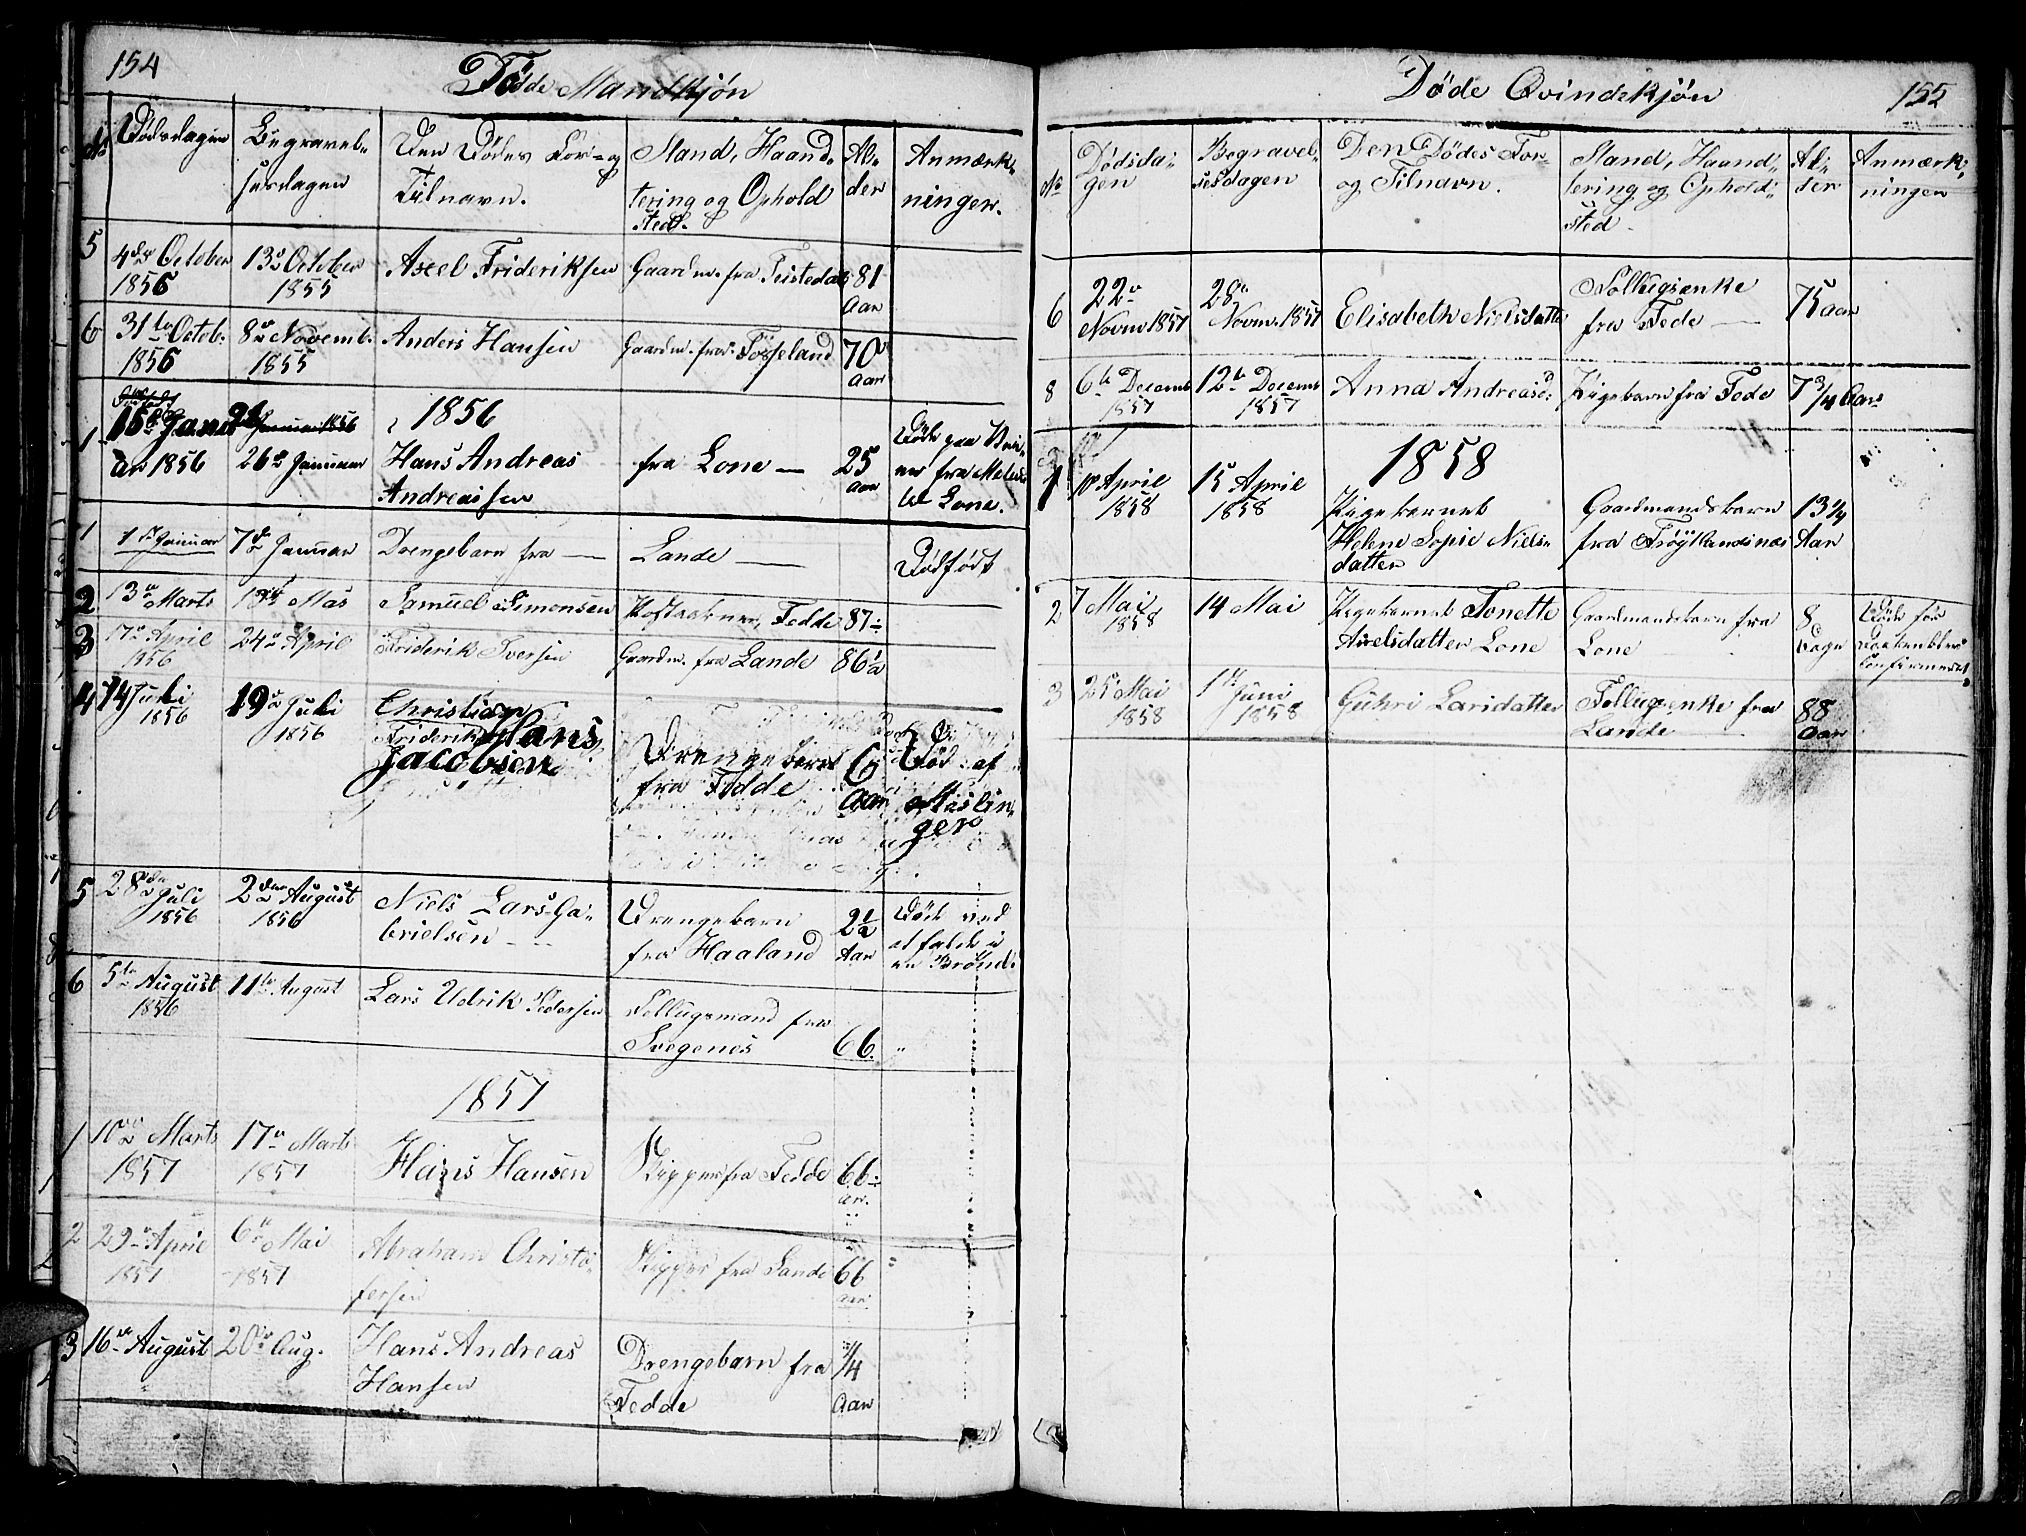 154
Døde Mandkjøn
No Dødsdagen Begravel-
sesdagen Den Dødes For- og
Tilnavn. Stand, Haand-
tering og Ophold
sted. Al-
der Anmærk-
ninger.
5 4de October
1856 13de October
1855 Axel Frideriksen Gaardm. fra Teistedal 81
Aar
6 31te Octob.
1856 8de Novemb.
1855 Anders Hansen Gaardm. fra Fosseland 70
Aar
1856
1 15de Janu
ar 1856 26de Januar Hans Andreas
Andreassen fra Lone 25
Aar Døde paa
fra
Lone.
1 1 Januar 7de Januar Drengebarn fra Lande Dødfødt
2 13de Marts 18de Mas Samuel Simonsen Fedde 87
3 17de April
1856 24de April Friderik Iversen Gaardm. fra Lande 86½
4 14 Juli
1856 19de Juli
1856 Christian
Friderik Hans
Jacobsen Drengebarn
fra Fedde 6
Aar Død af
Mæslin-
ger
5 28de Juli
1856 2den August
1856 Niels Lars Ga-
brielsen Drengebarn
fra Haaland 2½
Aar Døde ved
at falde i
en Brønd.
6 5te August
1856 11te August Lars Udrik Pedersen Follugsmand fra
Svegenes 66.
1857
1 10de Marts
1857 17de Marts
1857 Hans Hansen Skipper fra Fedde 66
Aar.
2 29de April
1857 6te Mai
1857 Abraham Christo-
fersen Skipper fra Lande 66
Aar
3 16de August 20de Aug. Hans Andreas
Hansen Drengebarn fra
Fedde ¾
Aar
Døde Qvindekjøn
155
No Dødsda-
gen Begravel-
sesdagen Den Dødes For-
og Tilnavn. Stand, Haand-
tering og Ophold-
sted. Al-
der Anmærk-
ningen
6 22de
Novm 1857 28de
Novm. 1857 Elisabeth Nielsdatter Follugsenke
fra Fede 75 Aar
8 6te Decemb
1857 12te Decemb
1857 Anna Andreasd: Pigebarn fra Fede 7¾ Aar
1858
1 10 April
1858 15 April
1858 Pigebarnet
Helene Sopie Niels-
datter Gaardmandsbarn
fra Frøytlandsnæs 13¼
Aar
2 7 Mai
1858 14 Mai Pigebarnet Tonette
Axelsdatter Lone Gaardmandsbarn fra
Lone 8
Dage Døde før
Daaben blev
Confirmeret
3 25 Mai
1858 1te Juni
1858 Guhri Larsdatter Follugsenke fra
Lande 88
Aar